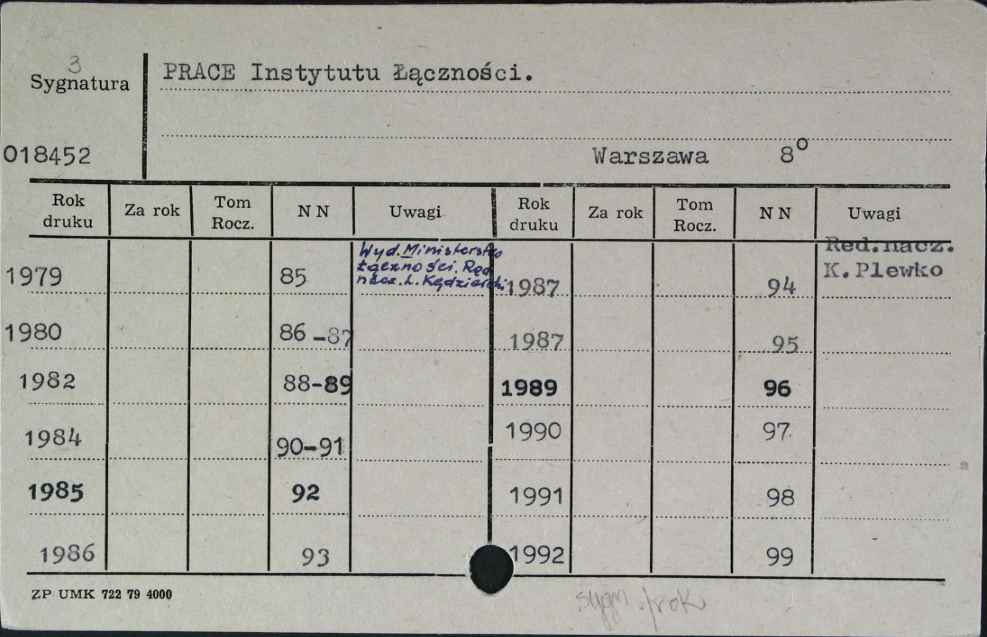 3
Sygnatura
PRACE Instytutu Łączności.
018452
Warszawa 8°
Rok druku Za rok Tom Rocz. N N Uwagi Rok druku Za rok Tom Rocz. N N Uwagi
Wyd. Ministerstwo
Łączności. Red.
nacz. L. Kądzielski
Red.nacz.
K.Plewko
1979 85 1987 94
1980 86-87 1987 95
1982 88-89 1989 96
1984 90-91 1990 97
1985 92 1991 98
1986 93 1992 99
ZP UMK 722 79 4000
sygn. /rok